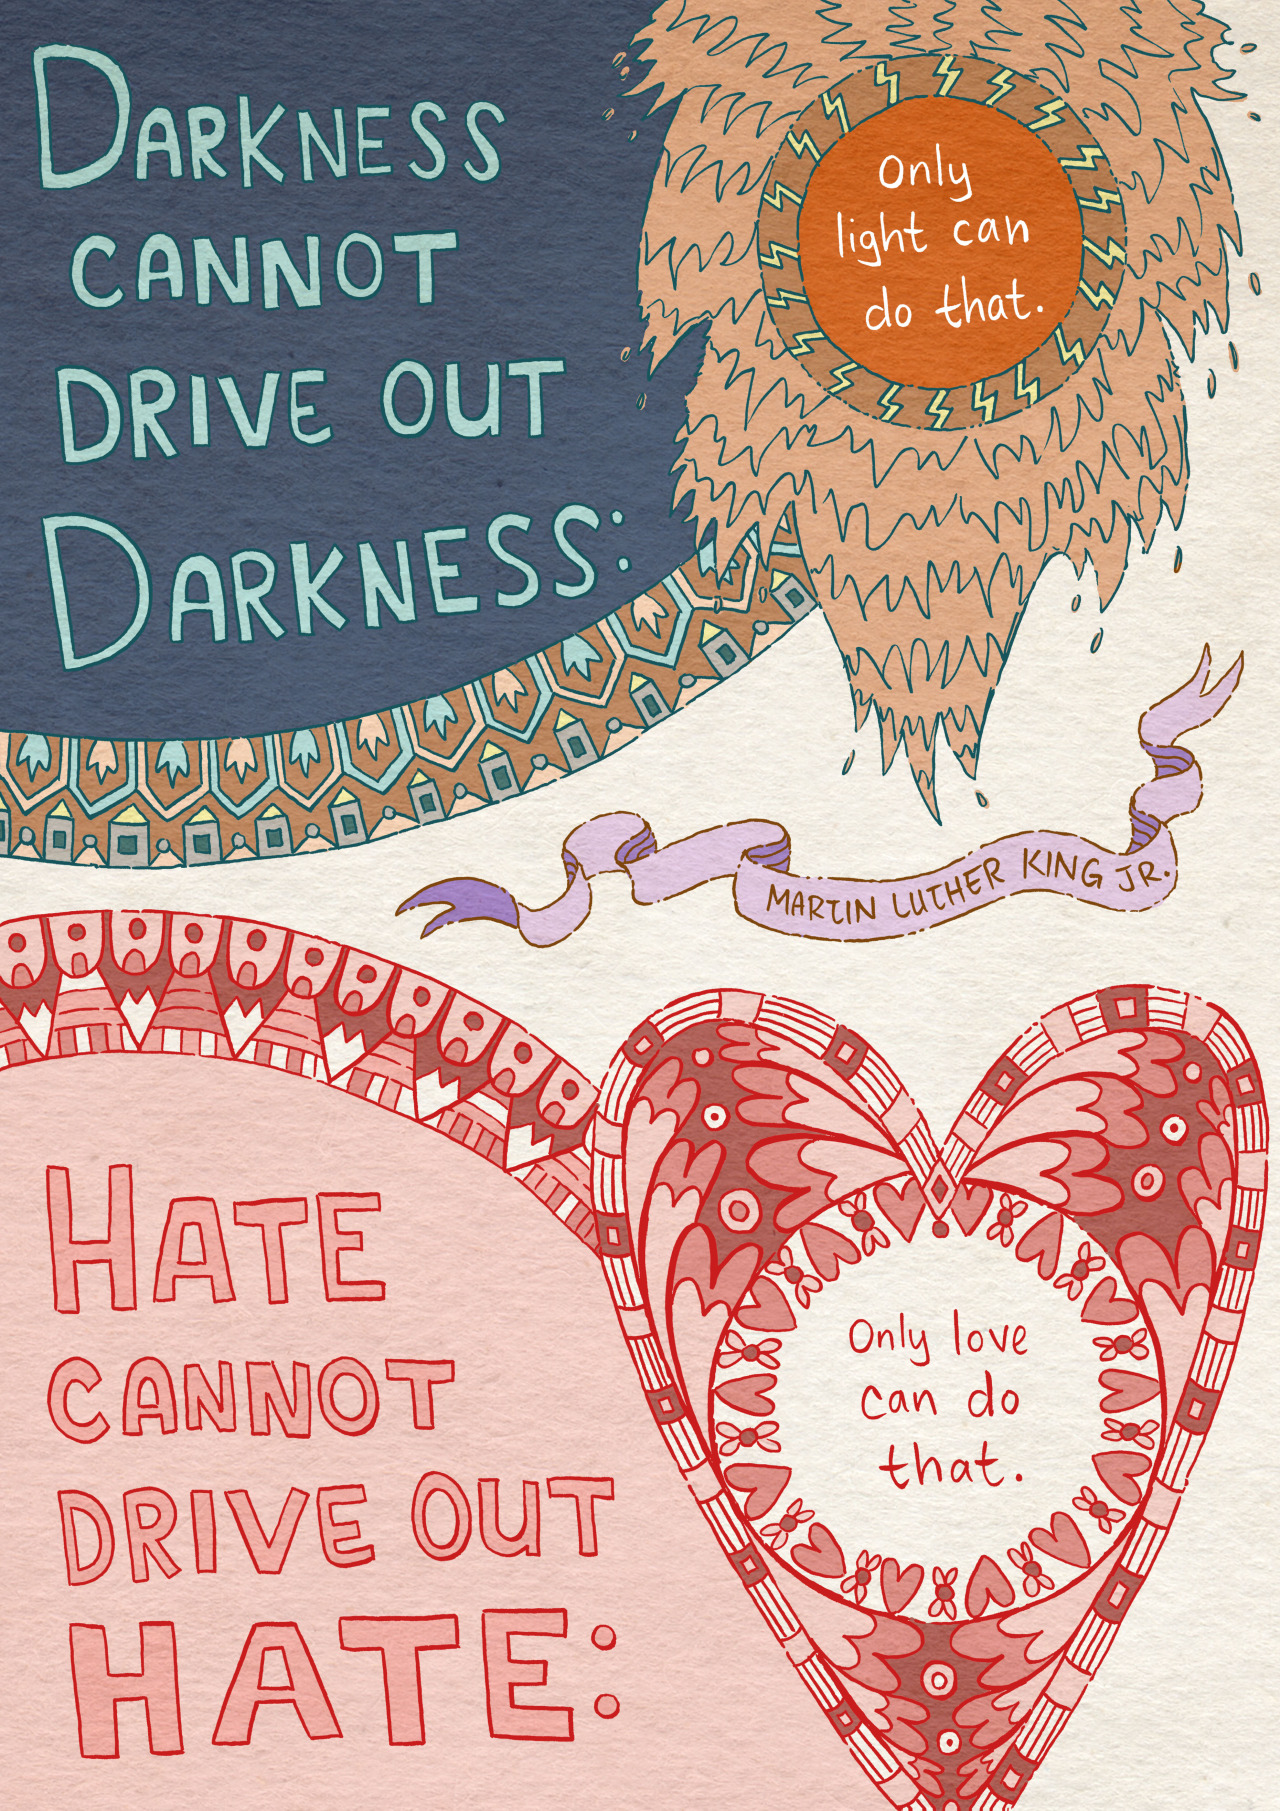 DARKNESS
CANNOT
DRIVE OUT
DARKNESS:
Only
light can
do that.
MARTIN LUTHER KING JR.
HATE
CANNOT
DRIVE OUT
HATE:
Only love
can do
that.